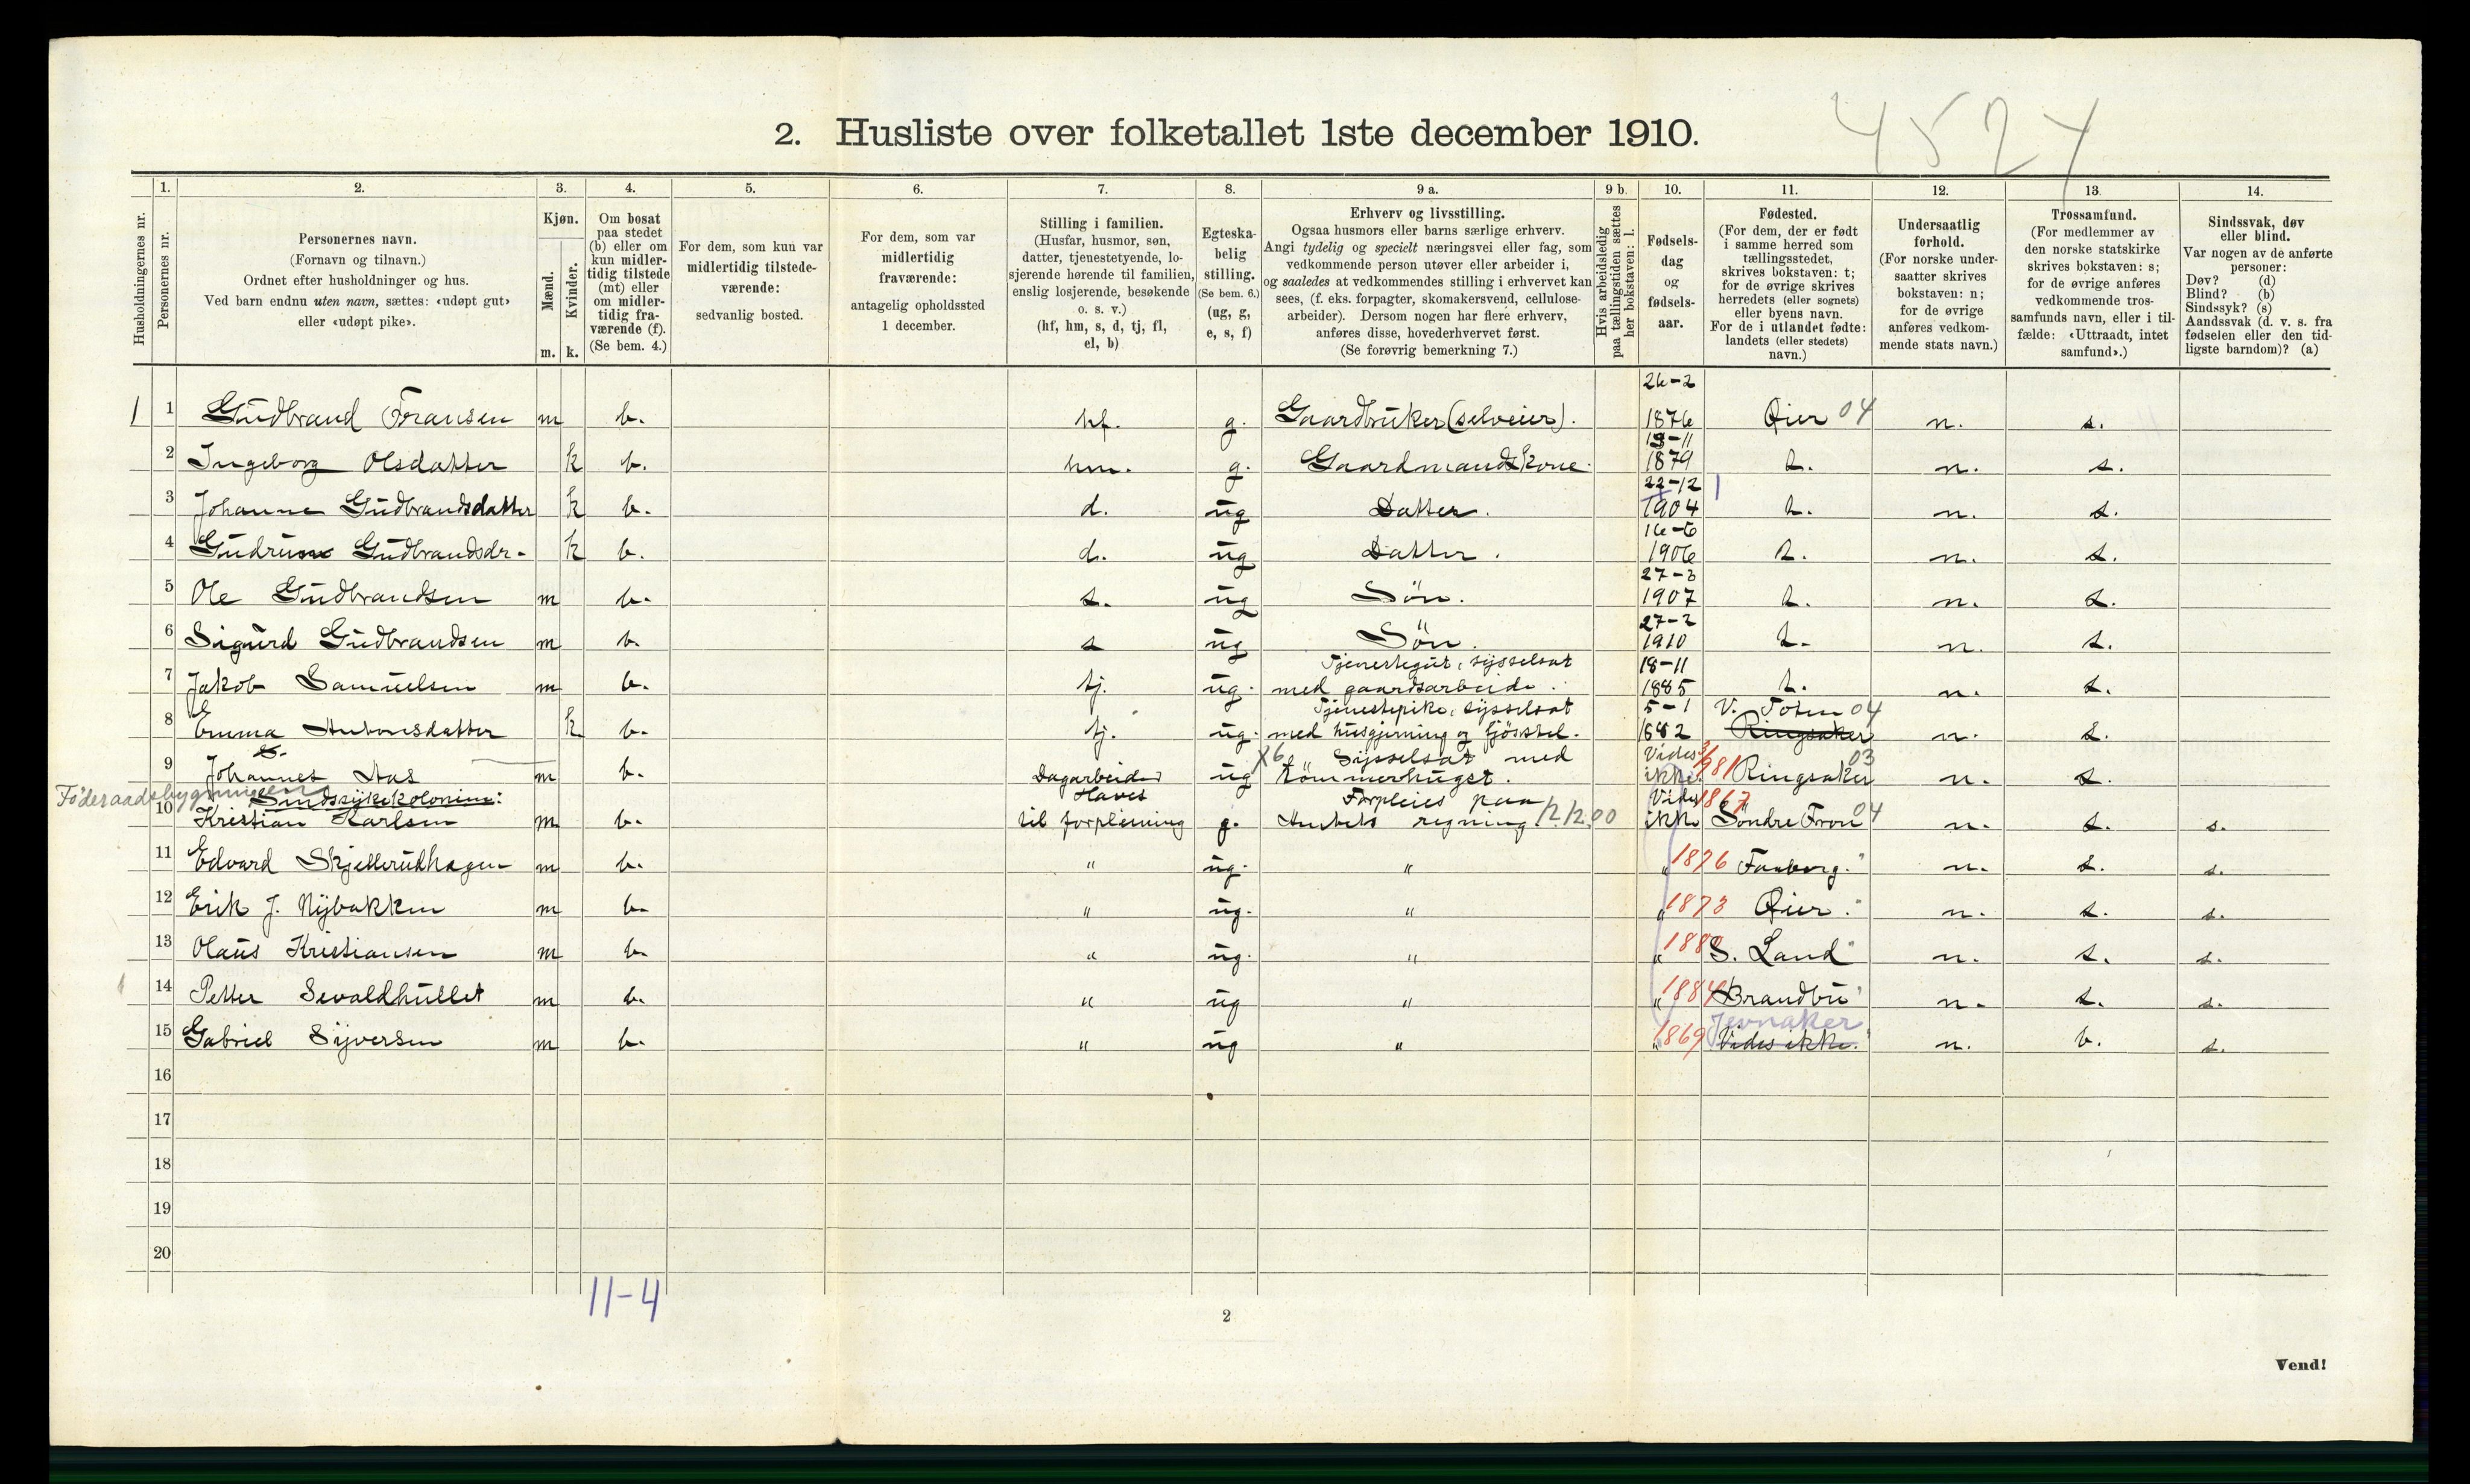 4524
2. Husliste over folketallet 1ste december 1910.
1. 2. 3. 4. 5. 6. 7. 8. 9 a. 9 b. 10. 11. 12. 13. 14.
Husholdningernes nr.
Personernes nr.
Personernes navn.
(Fornavn og tilnavn.)
Ordnet efter husholdninger og hus.
Ved barn endnu uten navn, sættes: «udøpt gut»
eller «udøpt pike».
Kjøn.
Mænd.
Kvinder.
m. k.
Om bosat
paa stedet
(b) eller om
kun midler-
tidig tilstede
(mt) eller
om midler-
tidig fra-
værende (f).
(Se bem. 4.)
For dem, som kun var
midlertidig tilstede-
værende:
sedvanlig bosted.
For dem, som var
midlertidig
fraværende:
antagelig opholdssted
1 december.
Stilling i familien.
(Husfar, husmor, søn,
datter, tjenestetyende, lo-
sjerende hørende til familien,
enslig losjerende, besøkende
o. s. v.)
(hf, hm, s, d, tj, fl,
el, b)
Egteska-
belig
stilling.
(Se bem. 6.)
(ug, g,
e, s, f)
Erhverv og livsstilling.
Ogsaa husmors eller barns særlige erhverv.
Angi tydelig og specielt næringsvei eller fag, som
vedkommende person utøver eller arbeider i,
og saaledes at vedkommendes stilling i erhvervet kan
sees, (f. eks. forpagter, skomakersvend, cellulose-
arbeider). Dersom nogen har flere erhverv,
anføres disse, hovederhvervet først.
(Se forøvrig bemerkning 7.)
Hvis arbeidsledig
paa tællingstiden sættes
her bokstaven: l.
Fødsels-
dag
og
fødsels-
aar.
Fødested.
(For dem, der er født
i samme herred som
tællingsstedet,
skrives bokstaven: t;
for de øvrige skrives
herredets (eller sognets)
eller byens navn.
For de i utlandet fødte:
landets (eller stedets)
navn.)
Undersaatlig
forhold.
(For norske under-
saatter skrives
bokstaven: n;
for de øvrige
anføres vedkom-
mende stats navn.)
Trossamfund.
(For medlemmer av
den norske statskirke
skrives bokstaven: s;
for de øvrige anføres
vedkommende tros-
samfunds navn, eller i til-
fælde: «Uttraadt, intet
samfund».)
Sindssvak, døv
eller blind.
Var nogen av de anførte
personer:
Døv? (d)
Blind? (b)
Sindssyk? (s)
Aandssvak (d. v. s. fra
fødselen eller den tid-
ligste barndom)? (a)
1 1 Gudbrand Fransen m b. hf. g. Gaardbruker (selveier). 26-2 1876 Øier 04 n. s.
2 Ingeborg Olsdatter k b. hm. g. Gaardmandskone. 13-11 1879 t. n. s.
3 Johanne Gudbrandsdatter k b. d. ug Datter. 22-12 1904 t. n. s.
4 Gudrun Gudbrandsdr- k b. d. ug Datter. 16-6 1906 t. n. s.
5 Ole Gudbrandsen m b. s. ug Søn. 27-3 1907 t. n. s.
6 Sigurd Gudbrandsen m b. s ug Søn. 27-2 1910 t. n. s.
7 Jakob Samuelsen m b. tj. ug. Tjenestegut, sysselsat med gaardsarbeide. 18-11 1885 t. n. s.
8 Emma Antonsdatter k b. tj. ug. Tjenestepike, sysselsat med husgjerning og fjösstel. 5-1 1882 V. Toten 04 Ringsaker n. s.
9 Johannes Aas m b. Dagarbeider ug X6 Sysselsat med tömmerhugst. Vides ikke. 3/7 81 Ringsaker 03 n. s.
Föderaadsbygningen
Sindssykekolonien:
10 Kristian Karlsen m b. Havet til forpleining g. Forpleies paa Amtets regning. 12/12.00 Vides ikke 1867 Söndre Fron 04 n. s. s.
11 Edvard Skjellerudhagen m b. " ug. " " 1876 Faaberg. " n. s. s.
12 Erik J. Nybakken m b. " ug. " " 1873 Øier. " n. s. s.
13 Olaus Kristiansen m b. " ug. " " S. Land " n. s. s.
14 Petter Sevaldhullet m b. " ug " " 1884 Brandbu " n. s. s.
15 Gabriel Syversen m b. " ug " " 1869 Jevnaker Vides ikke. " n. b. s.
16
17
18
19
20
11-4
2
Vend!